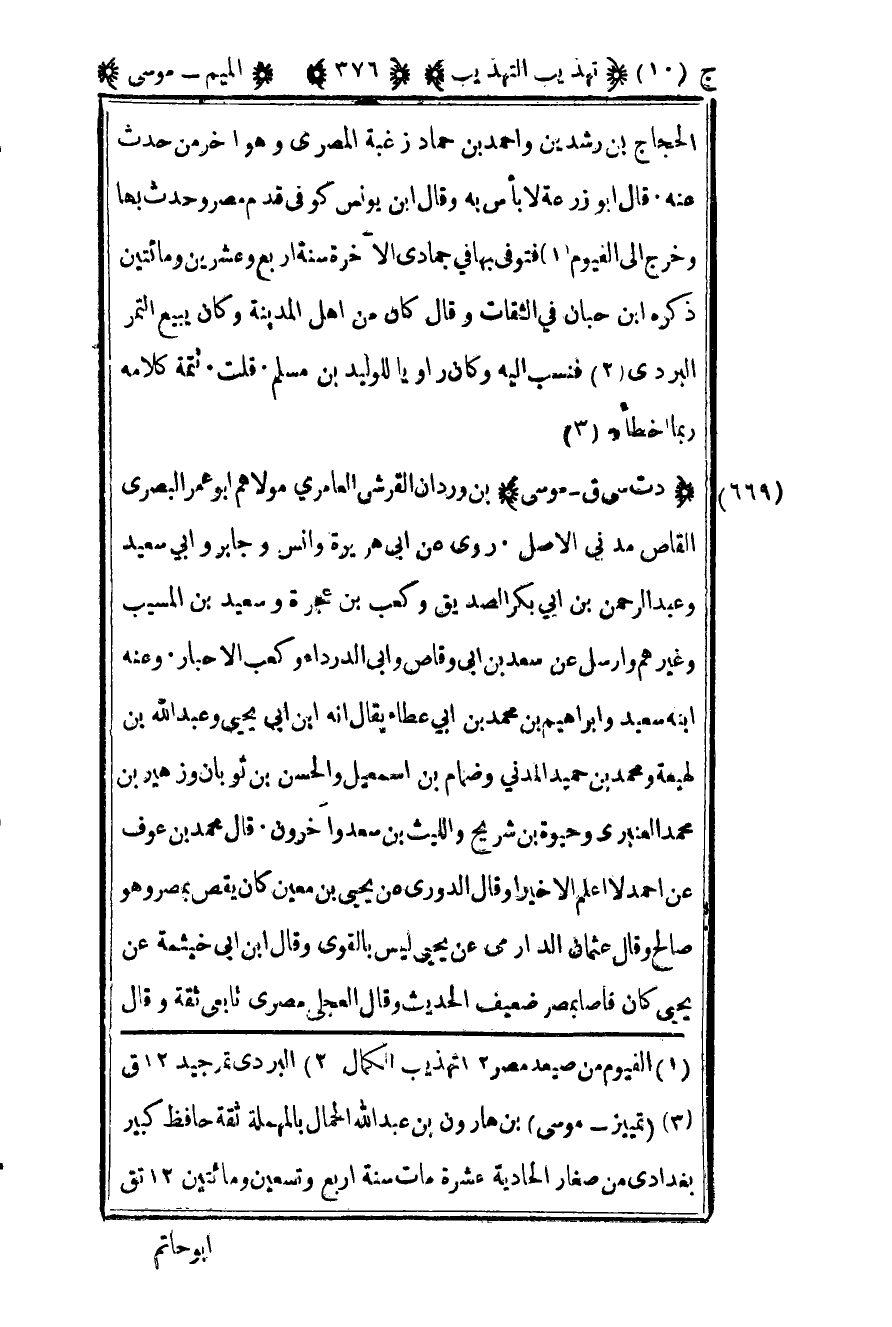 ج (١٠) ﴿ تهذيب التهذيب ﴾ ﴿ ٣٧٦ ﴾ ﴿ الميم ـ موسى ﴾
الحجاج بن رشدين واحمد بن حماد زغبة المصرى وهو اخر من حدث
عنه · قال ابو زرعة لا بأس به وقال ابن يونس كوفى قدم مصر وحدث بها
وخرج الى الفيوم (١) فتوفى بها في جمادى الآخرة سنة اربع وعشرين ومائتين
ذكره ابن حبان في الثقات وقال كان من اهل المدينة وكان يبيع التمر
البردى (٢) فنسب اليه وكان راويا للوليد بن مسلم · قلت · تتمة كلامه
ربما اخطأ (٣)
(٦٦٩) ﴿ دت سى ق ـ موسى ﴾ بن وردان القرشى العامري مولاهم ابو عمر البصرى
القاص مدني الاصل · روى عن ابى هريرة وانس وجابر وابي سعيد
وعبد الرحمن بن ابي بكر الصديق وكعب بن عجرة وسعيد بن المسيب
وغيرهم وارسل عن سعد بن ابى وقاص وابى الدرداء وكعب الاحبار · وعنه
ابنه سعيد وابراهيم بن محمد بن ابي عطاء يقال انه ابن ابي يحيى وعبد الله بن
لهيعة ومحمد بن حميد المدني وضمام بن اسمعيل والحسن بن ثوبان وزهير بن
محمد العنبرى وحيوة بن شريح والليث بن سعد وآخرون · قال محمد بن عوف
عن احمد لا اعلم الا خيرا وقال الدورى عن يحيى بن معين كان يقص بمصر وهو
صالح وقال عثمان الدارمى عن يحيى ليس بالقوى وقال ابن ابى خيثمة عن
يحيى كان قاصا بمصر ضعيف الحديث وقال العجلى مصرى تابعى ثقة وقال
(١) الفيوم من صيعد مصر ١٢ تهذيب الكمال (٢) البردى تمر جيد ١٢ ق
(٣) (تمييز ـ موسى) بن هارون بن عبد الله الحمال بالمهملة ثقة حافظ كبير
بغدادى من صغار الحادية عشرة مات سنة اربع وتسعين ومائتين ١٢ تق
ابو حاتم